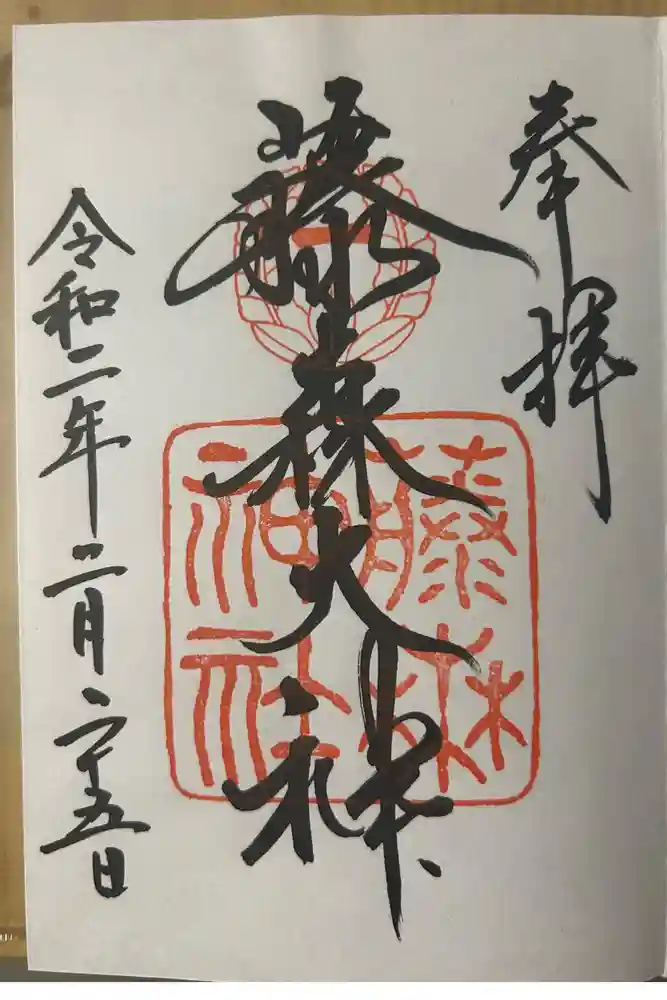 奉拝
藤森大神
藤森神社
令和二年二月二十五日